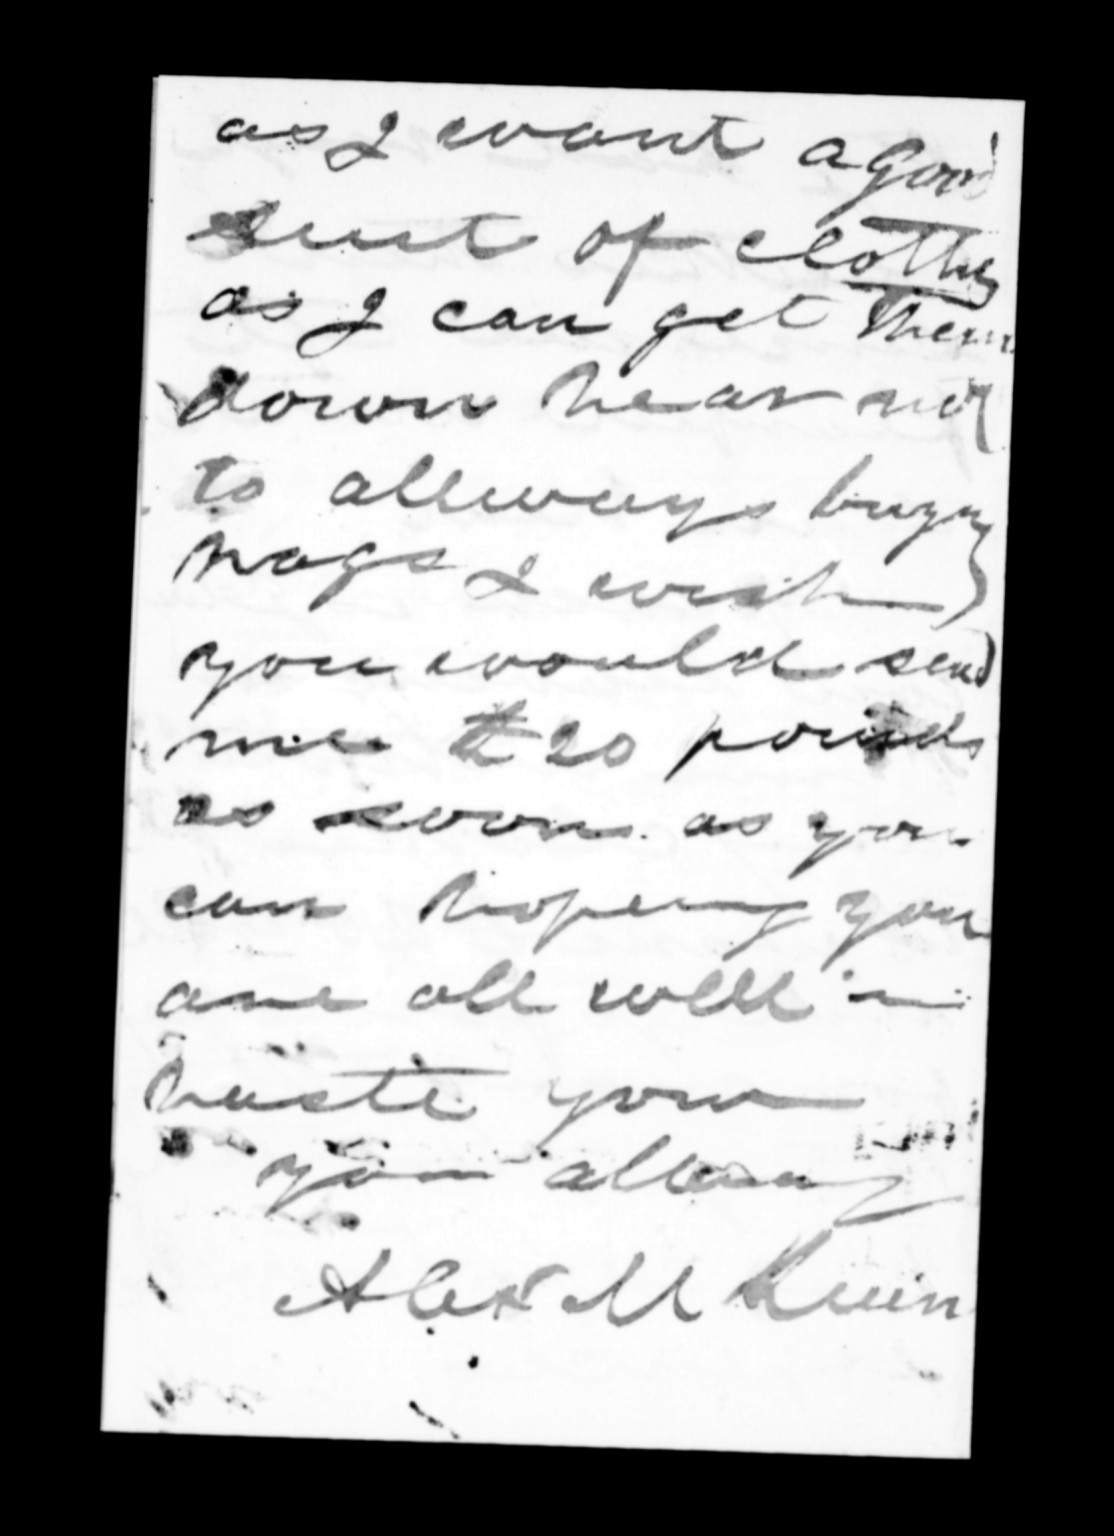 as I want a good
suit of clothes
as I can get them
down hear not
to allways buyy
rags I wish
you would send
me £20 pounds
as soon as you
can hopeing you
are all well in
haste your
you allway
Alex M